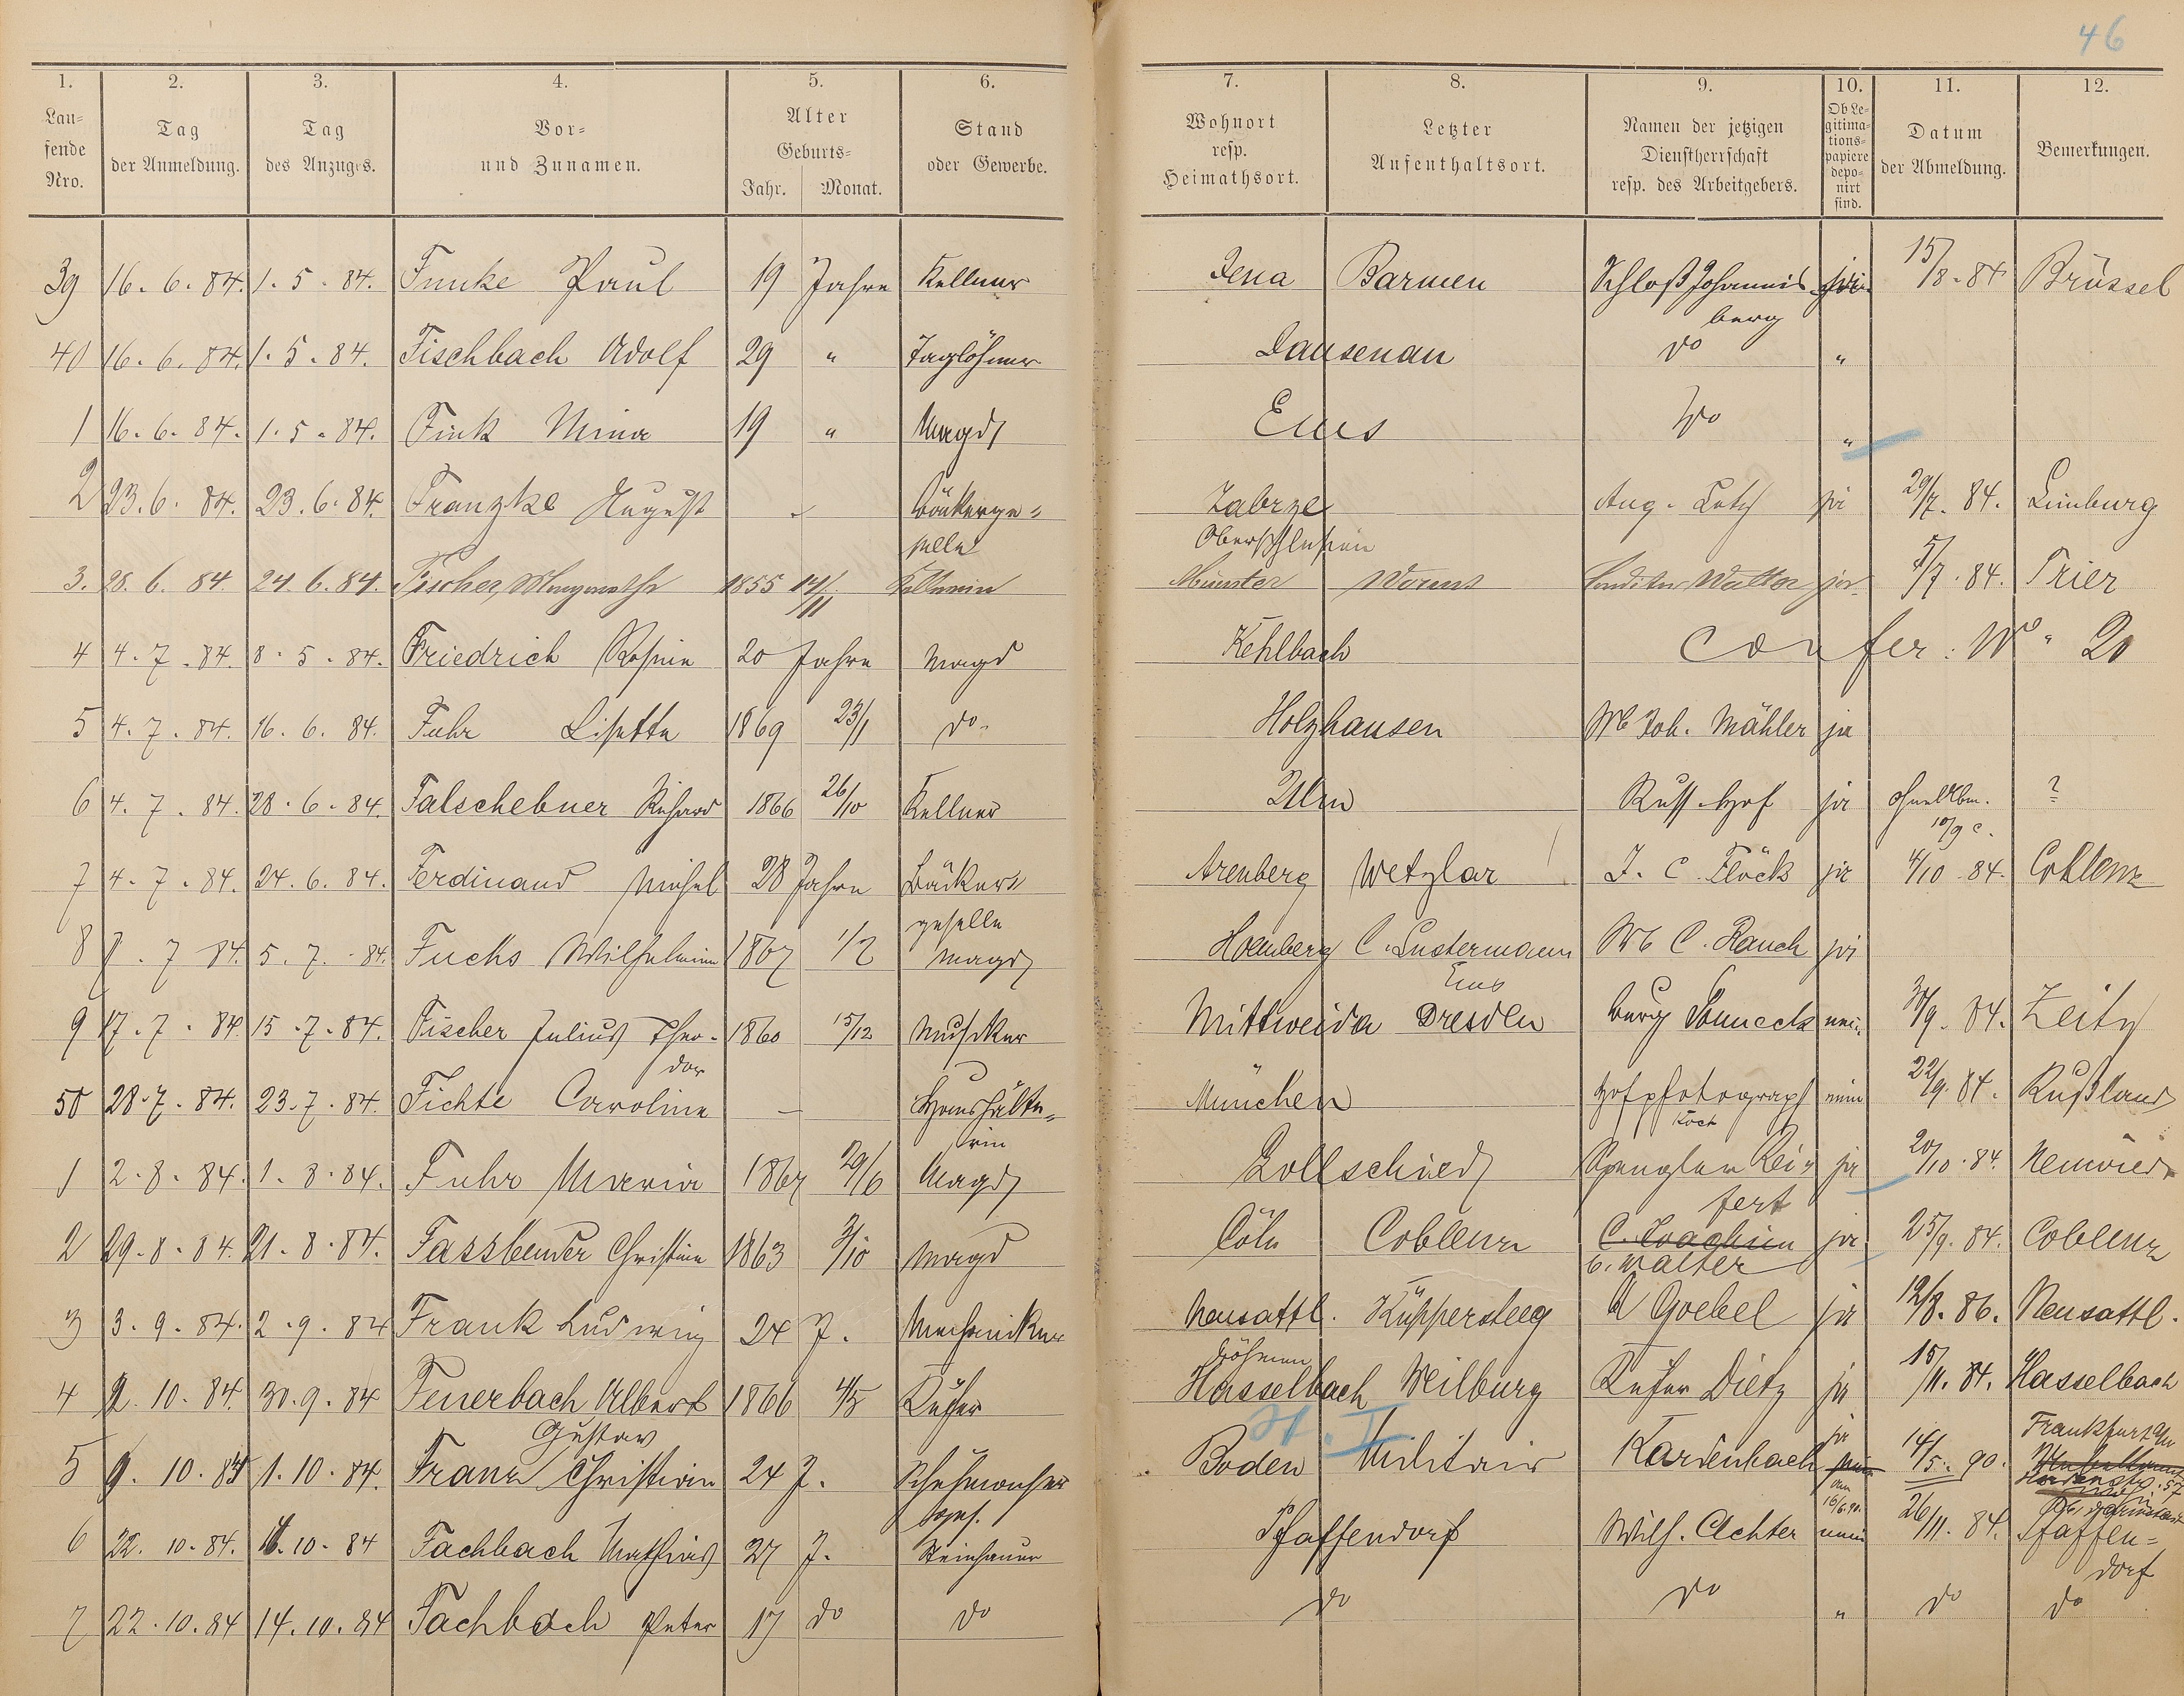 46
1. 2. 3. 4. 5. 6. 7. 8. 9. 10. 11. 12.
Lau=
sende
Nro.
Tag
der Anmeldung.
Tag
des Anzuges.
Vor=
und Zunamen.
Alter
Geburts=
Jahr. Monat.
Stand
oder Gewerbe.
Wohnort
resp.
Heimathsort.
Letzter
Aufenthaltsort.
Namen der jetzigen
Dienstherrschaft
resp. des Arbeitgebers.
Ob Le=
gitima=
tions=
papiere
depo=
nirt
sind.
Datum
der Abmeldung.
Bemerkungen.
39 16. 6. 84. 1. 5. 84. Funke Paul 19 Jahre Kellner Jena Barmen Schloß Johannis 15/8. 84 Brüssel
berg
40 16. 6. 84. 1. 5. 84. Fischbach Adolf 29 " Taglöhner Dausenau do "
1 16. 6. 84. 1. 5. 84. Fink Mina 19 " Magd Ems do "
2 23. 6. 84. 23. 6. 84. Franzke August – Bäckerge= Zabrze Aug. ja 29/7. 84. Limburg
selle Oberschlesien
3. 28. 6. 84. 24. 6. 84. Fischer, Margarethe 1855 14/11 Kellnerin Münster Worms Conditor Walter ja 5/7. 84. Trier
4 4. 7. 84. 8. 5. 84. Friedrich Rosine 20 Jahre Magd Kehlbach confer: No 20
5 4. 7. 84. 16. 6. 84. Fuhr Lisette 1869 23/1 do. Holzhausen Joh. Mähler ja
6 4. 7. 84. 28. 6. 84. Falschebner Richard 1866 26/10 Kellner Ulm Russ. Hof ja ohne Abm. ?
10/9 c.
7 4. 7. 84. 24. 6. 84. Ferdinand Michel 28 Jahre Bäcker= Arenberg Wetzlar J. C. Flöck ja 4/10 84. Coblenz
geselle
8 7. 7 84. 5. 7. 84. Fuchs Wilhelmine 1867 1/2 Magd C. Lustermann C. Rauch ja
Ems
9 17. 7. 84. 15. 7. 84. Fischer Julius Theo- 1860 15/12 Musiker Mittweida Dresden Burg nein 30/9. 84. Zeitz
dor
50 28. 7. 84. 23. 7. 84. Fichte Caroline – Haushälte= München Hofphotograph nein 22/9. 84. Rußland
rin
1 2. 8. 84. 1. 8. 84. Fuhr Maria 1867 29/6 Magd Zollschied Spengler Rei= ja 20/10. 84. Neuwied
fert
2 29. 8. 84. 21. 8. 84. Fassbender Christine 1863 3/10 Magd Cöln Coblenz C. Joachim ja 25/9. 84. Coblenz
C. Walter
3 3. 9. 84. 2. 9. 84 Frank Ludwig 24 J. Mechaniker Neusattl. Küppersteeg A Goebel ja 12/8. 86. Neusattl.
Böhmen
4 2. 10. 84. 30. 9. 84 Feuerbach Albert 1866 4/5 Küfer Hasselbach Weilburg Küfer Dietz ja 15/11. 84. Hasselbach
Gustav
5 9. 10. 84 1. 10. 84. Franz Christian 24 J. Schuhmacher Boden Militair Kardenbach ja 14/5. 90. Frankfurt
6 22. 10. 84. 10. 84 Fachbach Mathias 27 J. Steinhauer Pfaffendorf Wilh. Achter nein 26/11. 84. Pfaffen=
dorf
7 22. 10. 84 14. 10. 84 Fachbach Peter 17 do do do do " do do